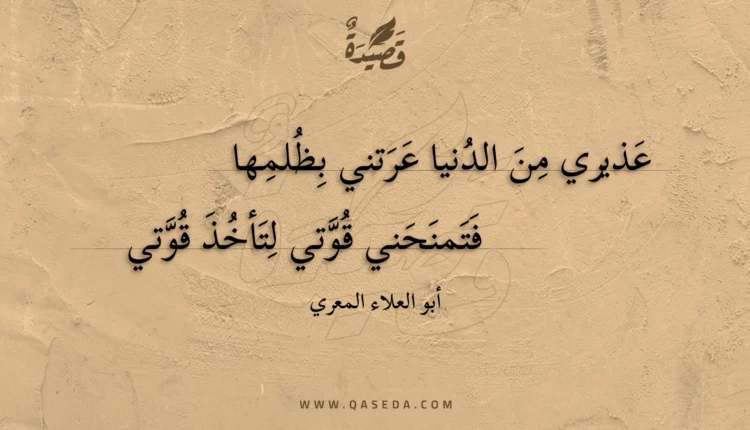 قَصِيْدَةٌ
عَذيري مِنَ الدُنيا عَرَتني بِظُلمِها
فَتَمنَحَني قُوَّتي لِتَأخُذَ قُوَّتي
أبو العلاء المعري
WWW.QASEDA.COM